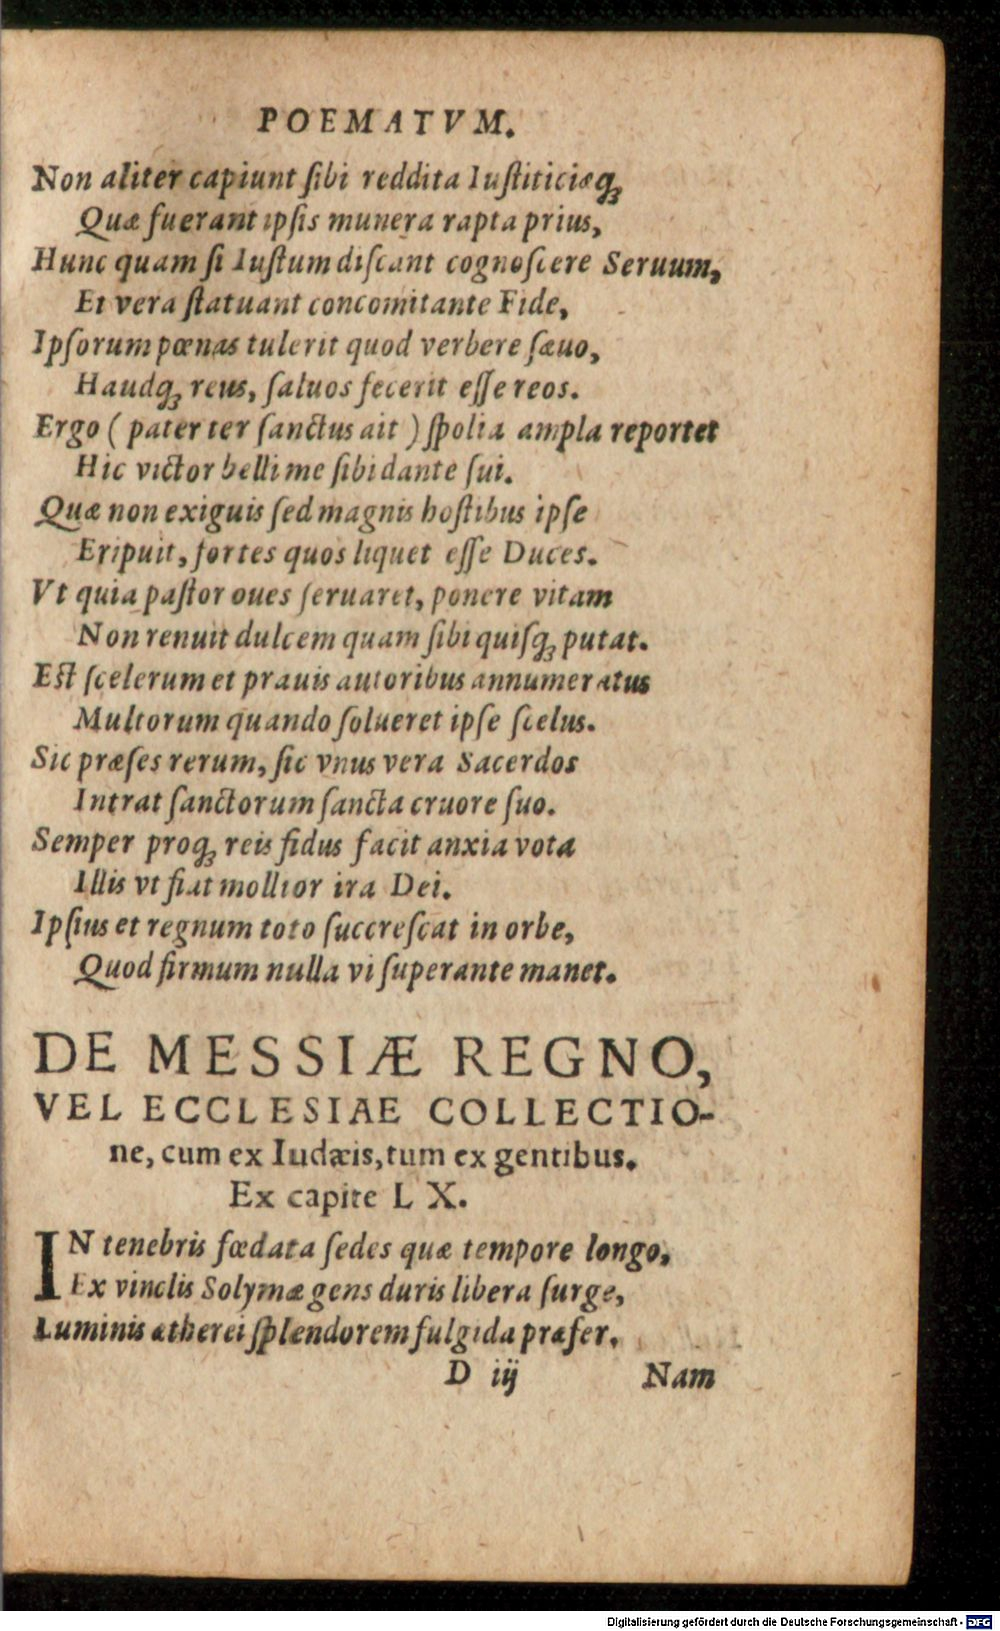 POEMATVM.
Non aliter capiunt ſibi reddita Iuſtiticiæq;
Quæ fuerant ipſis munera rapta prius,
Hunc quam ſi Iuſtum diſcant cognoſcere Seruum,
Et vera ſtatuant concomitante Fide,
Ipſorum pœnas tulerit quod verbere ſæuo,
Haudq; reus, ſaluos fecerit eſſe reos.
Ergo ( pater ter ſanctus ait ) ſpolia ampla reportet
Hic victor belli me ſibi dante ſui.
Quæ non exiguis ſed magnis hoſtibus ipſe
Eripuit, fortes quos liquet eſſe Duces.
Vt quia paſtor oues ſeruaret, ponere vitam
Non renuit dulcem quam ſibi quiſq; putat.
Eſt ſcelerum et prauis autoribus annumeratus
Multorum quando ſolueret ipſe ſcelus.
Sic præſes rerum, ſic vnus vera Sacerdos
Intrat ſanctorum ſancta cruore ſuo.
Semper proq; reis fidus facit anxia vota
Illis vt fiat mollior ira Dei.
Ipſius et regnum toto ſuccreſcat in orbe,
Quod firmum nulla vi ſuperante manet.
DE MESSIÆ REGNO,
VEL ECCLESIAE COLLECTIO-
ne, cum ex Iudæis, tum ex gentibus.
Ex capite L X.
IN tenebris fœdata ſedes quæ tempore longo,
Ex vinclis Solymæ gens duris libera ſurge,
Luminis ætherei ſplendorem fulgida præfer.
D iij Nam
Digitalisierung gefördert durch die Deutsche Forschungsgemeinschaft - DFG